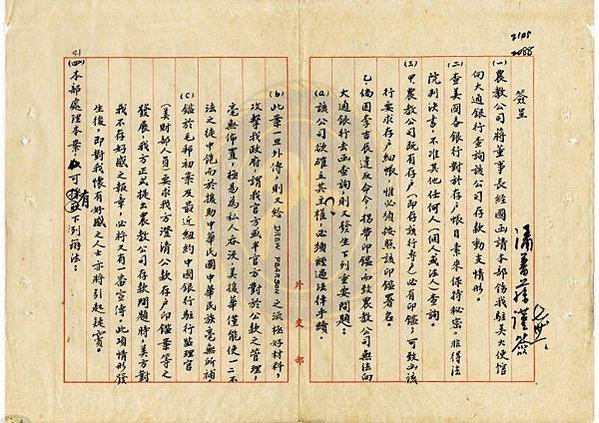 2105
2088
簽呈
謹簽
(一)農教公司將董事長經國函請本部飭我駐美大使館
向大通銀行查詢該公司存款動支情形。
(二)查美國各銀行對於存戶帳目素來保持秘密,非得法
院判決書,不准其他任何人(個人或法人)查詢。
(三)甲、農教公司既有存戶(即存該行專戶)必有印鑑,可致函該
行要求存戶細帳,惟必須按照該印鑑署名。
乙、倘因李吉辰違反命令,捲帶印鑑,而致農教公司無法向
大通銀行去函查詢,則又發生下列重要問題:
(a)該公司欲確立其主權,必須經過法律手續。
外交部
(b)此案一旦外傳,則又給DREW PEARSON之流極好材料,
攻擊我政府,謂我官方或半官方對於公款之管理,
毫無佈置,極易為私人吞沒,美援華僅能使一二不
法之徒中飽而於援助中華民國中華民族毫無所補
(c)鑑於毛邦初案及最近紐約中國銀行駐行監理官
(美財部人員)要求我方澄清公款存戶印鑑等之
發展,我方正式提出農教公司存款問題時,美方對
我不存好感之報章,必將又有一番宣傳,此項情形發
生後,即對我懷有好感之人士亦將引起疑竇。
(四)本部處理本案可有下列辦法:
41